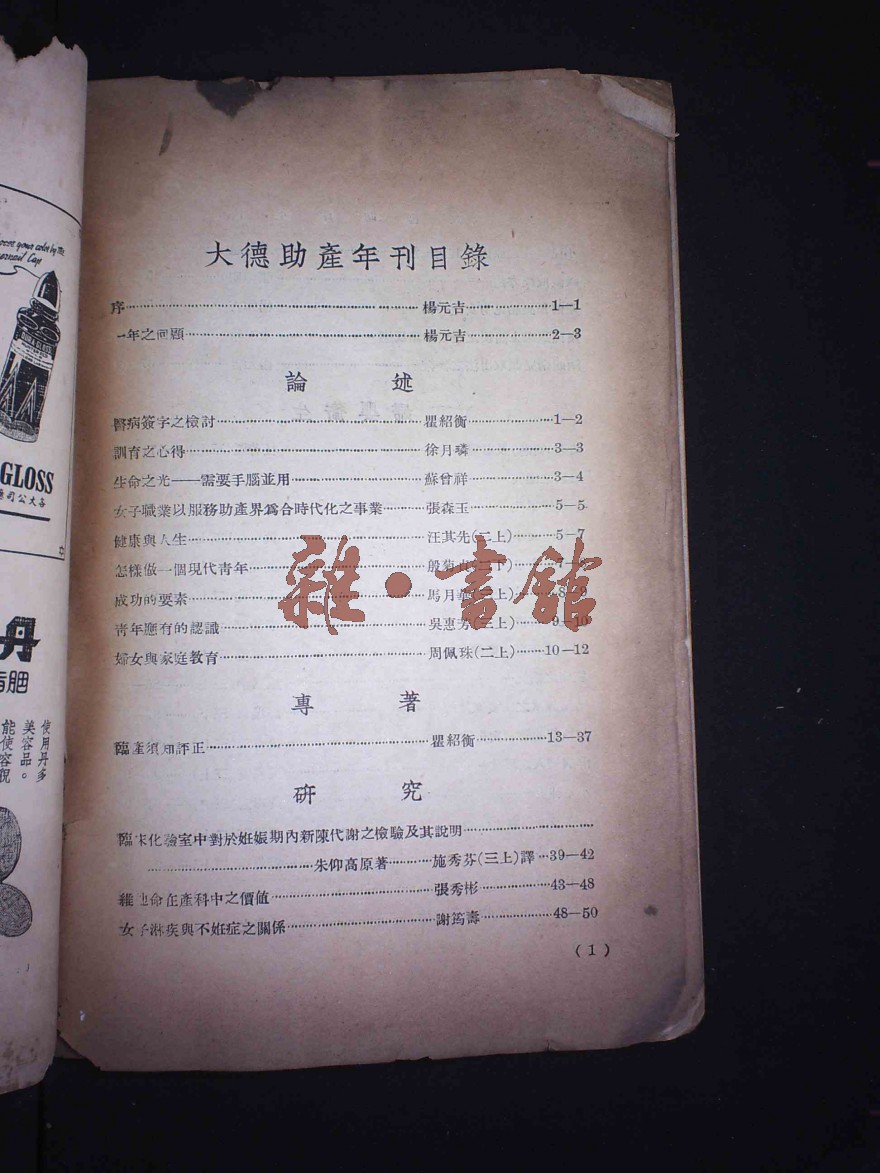 大德助產年刊目錄
序……楊元吉……1—1
一年之回顧……楊元吉……2—3
論 述
醫病簽字之檢討……瞿紹衡……1—2
訓育之心得……徐月璘……3—3
生命之光——需要手腦並用……蘇曾祥……3—4
女子職業以服務助產界爲合時代化之事業……張森玉……5—5
健康與人生……汪其先(二上)……5—7
怎樣做一個現代青年……殷菊
成功的要素……馬月 (三上)……8—9
青年應有的認識……吳惠芳(三上)……9—10
婦女與家庭教育……周佩珠(二上)……10—12
專 著
臨產須知評正……瞿紹衡……13—37
研 究
臨床化驗室中對於妊娠期內新陳代謝之檢驗及其說明……
……朱仰高原著……施秀芬(三上)譯…39—42
維他命在產科中之價值……張秀彬……43—48
女子淋疾與不妊症之關係……謝筠壽……48—50
(1)
雜·書館
GLOSS
丹
使用丹多
美容品。